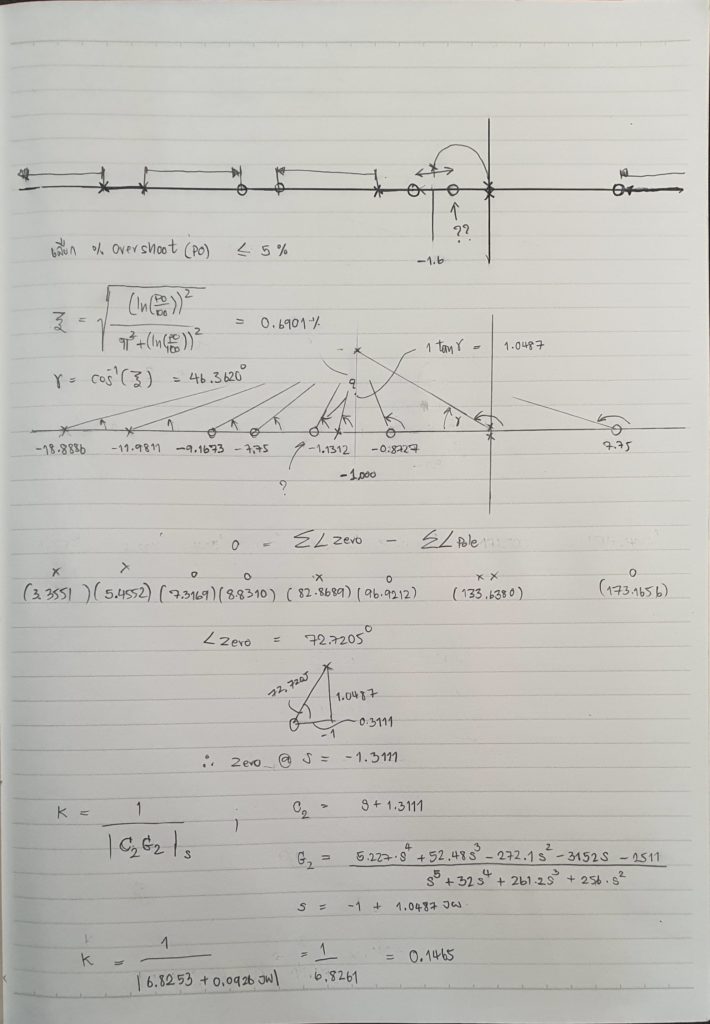 ??
-1.6
เลือก % overshoot (PO) ≤ 5 %
ζ = √( (ln(PO/100))² / (π² + (ln(PO/100))²) ) = 0.6901
1 tan γ = 1.0487
γ = cos⁻¹(ζ) = 46.3620°
γ
-18.8886 -11.9811 -9.1673 -7.75 -1.1312 -0.8727 7.75
? -1.000
0 = Σ∠zero - Σ∠Pole
x x o o x o x x o
(3.3551) (5.4552) (7.3169) (8.8310) (82.8689) (96.9212) (133.6380) (173.1656)
∠zero = 72.7205°
72.7205 1.0487
0.3111
-1
∴ zero @ s = -1.3111
K = 1 / |C₂G₂|s ; C₂ = s + 1.3111
G₂ = (5.227·s⁴ + 52.48s³ - 272.1s² - 3152s - 2511) / (s⁵ + 32s⁴ + 261.2s³ + 256·s²)
s = -1 + 1.0487 JW
K = 1 / |6.8253 + 0.0926 JW| = 1 / 6.8261 = 0.1465